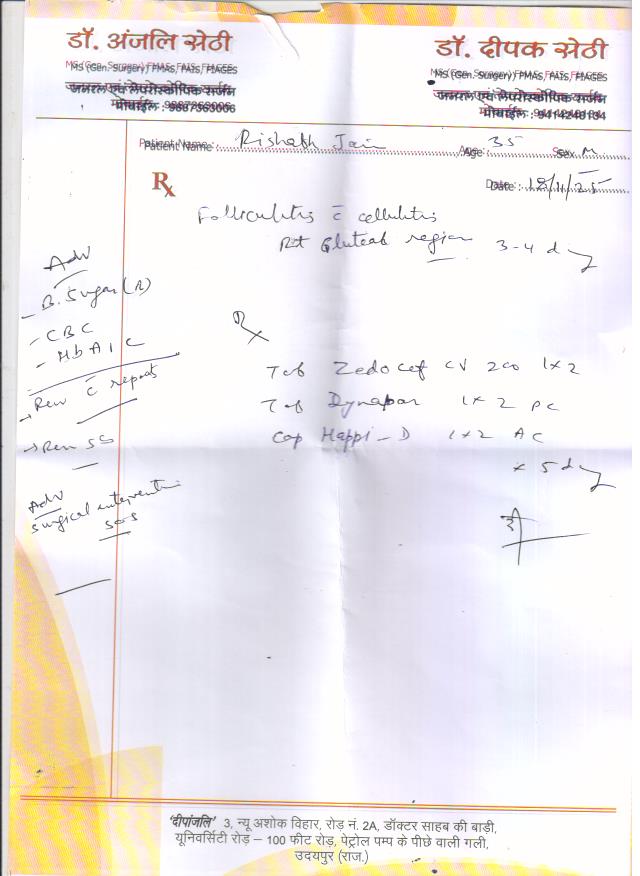 डॉ. अंजलि सेठी
MS (Gen. Surgery) FMAS, FAIS, FIAGES
जनरल एवं लेपरोस्कोपिक सर्जन
मोबाईल : 9887363006
डॉ. दीपक सेठी
MS (Gen. Surgery) FMAS, FAIS, FIAGES
जनरल एवं लेपरोस्कोपिक सर्जन
मोबाईल : 9414248194
Patient Name : Rishabh Jain Age : 35 Sex M
Rx
Date : 18/11/25
Folliculitis c̄ cellulitis
Rt Gluteal region 3-4 day
Adv
- B. Sugar (R)
- CBC
- HbA1C
→ Rev c̄ reports
→ Rev SOS
Adv
Surgical intervention
SOS
Rx
Tab Zedocef CV 200 1x2
Tab Dynapar 1x2 PC
Cap Happi-D 1x2 AC
x 5 day
'दीपांजलि' 3, न्यू अशोक विहार, रोड़ नं. 2A, डॉक्टर साहब की बाड़ी,
यूनिवर्सिटी रोड़ – 100 फीट रोड़, पेट्रोल पम्प के पीछे वाली गली,
उदयपुर (राज.)